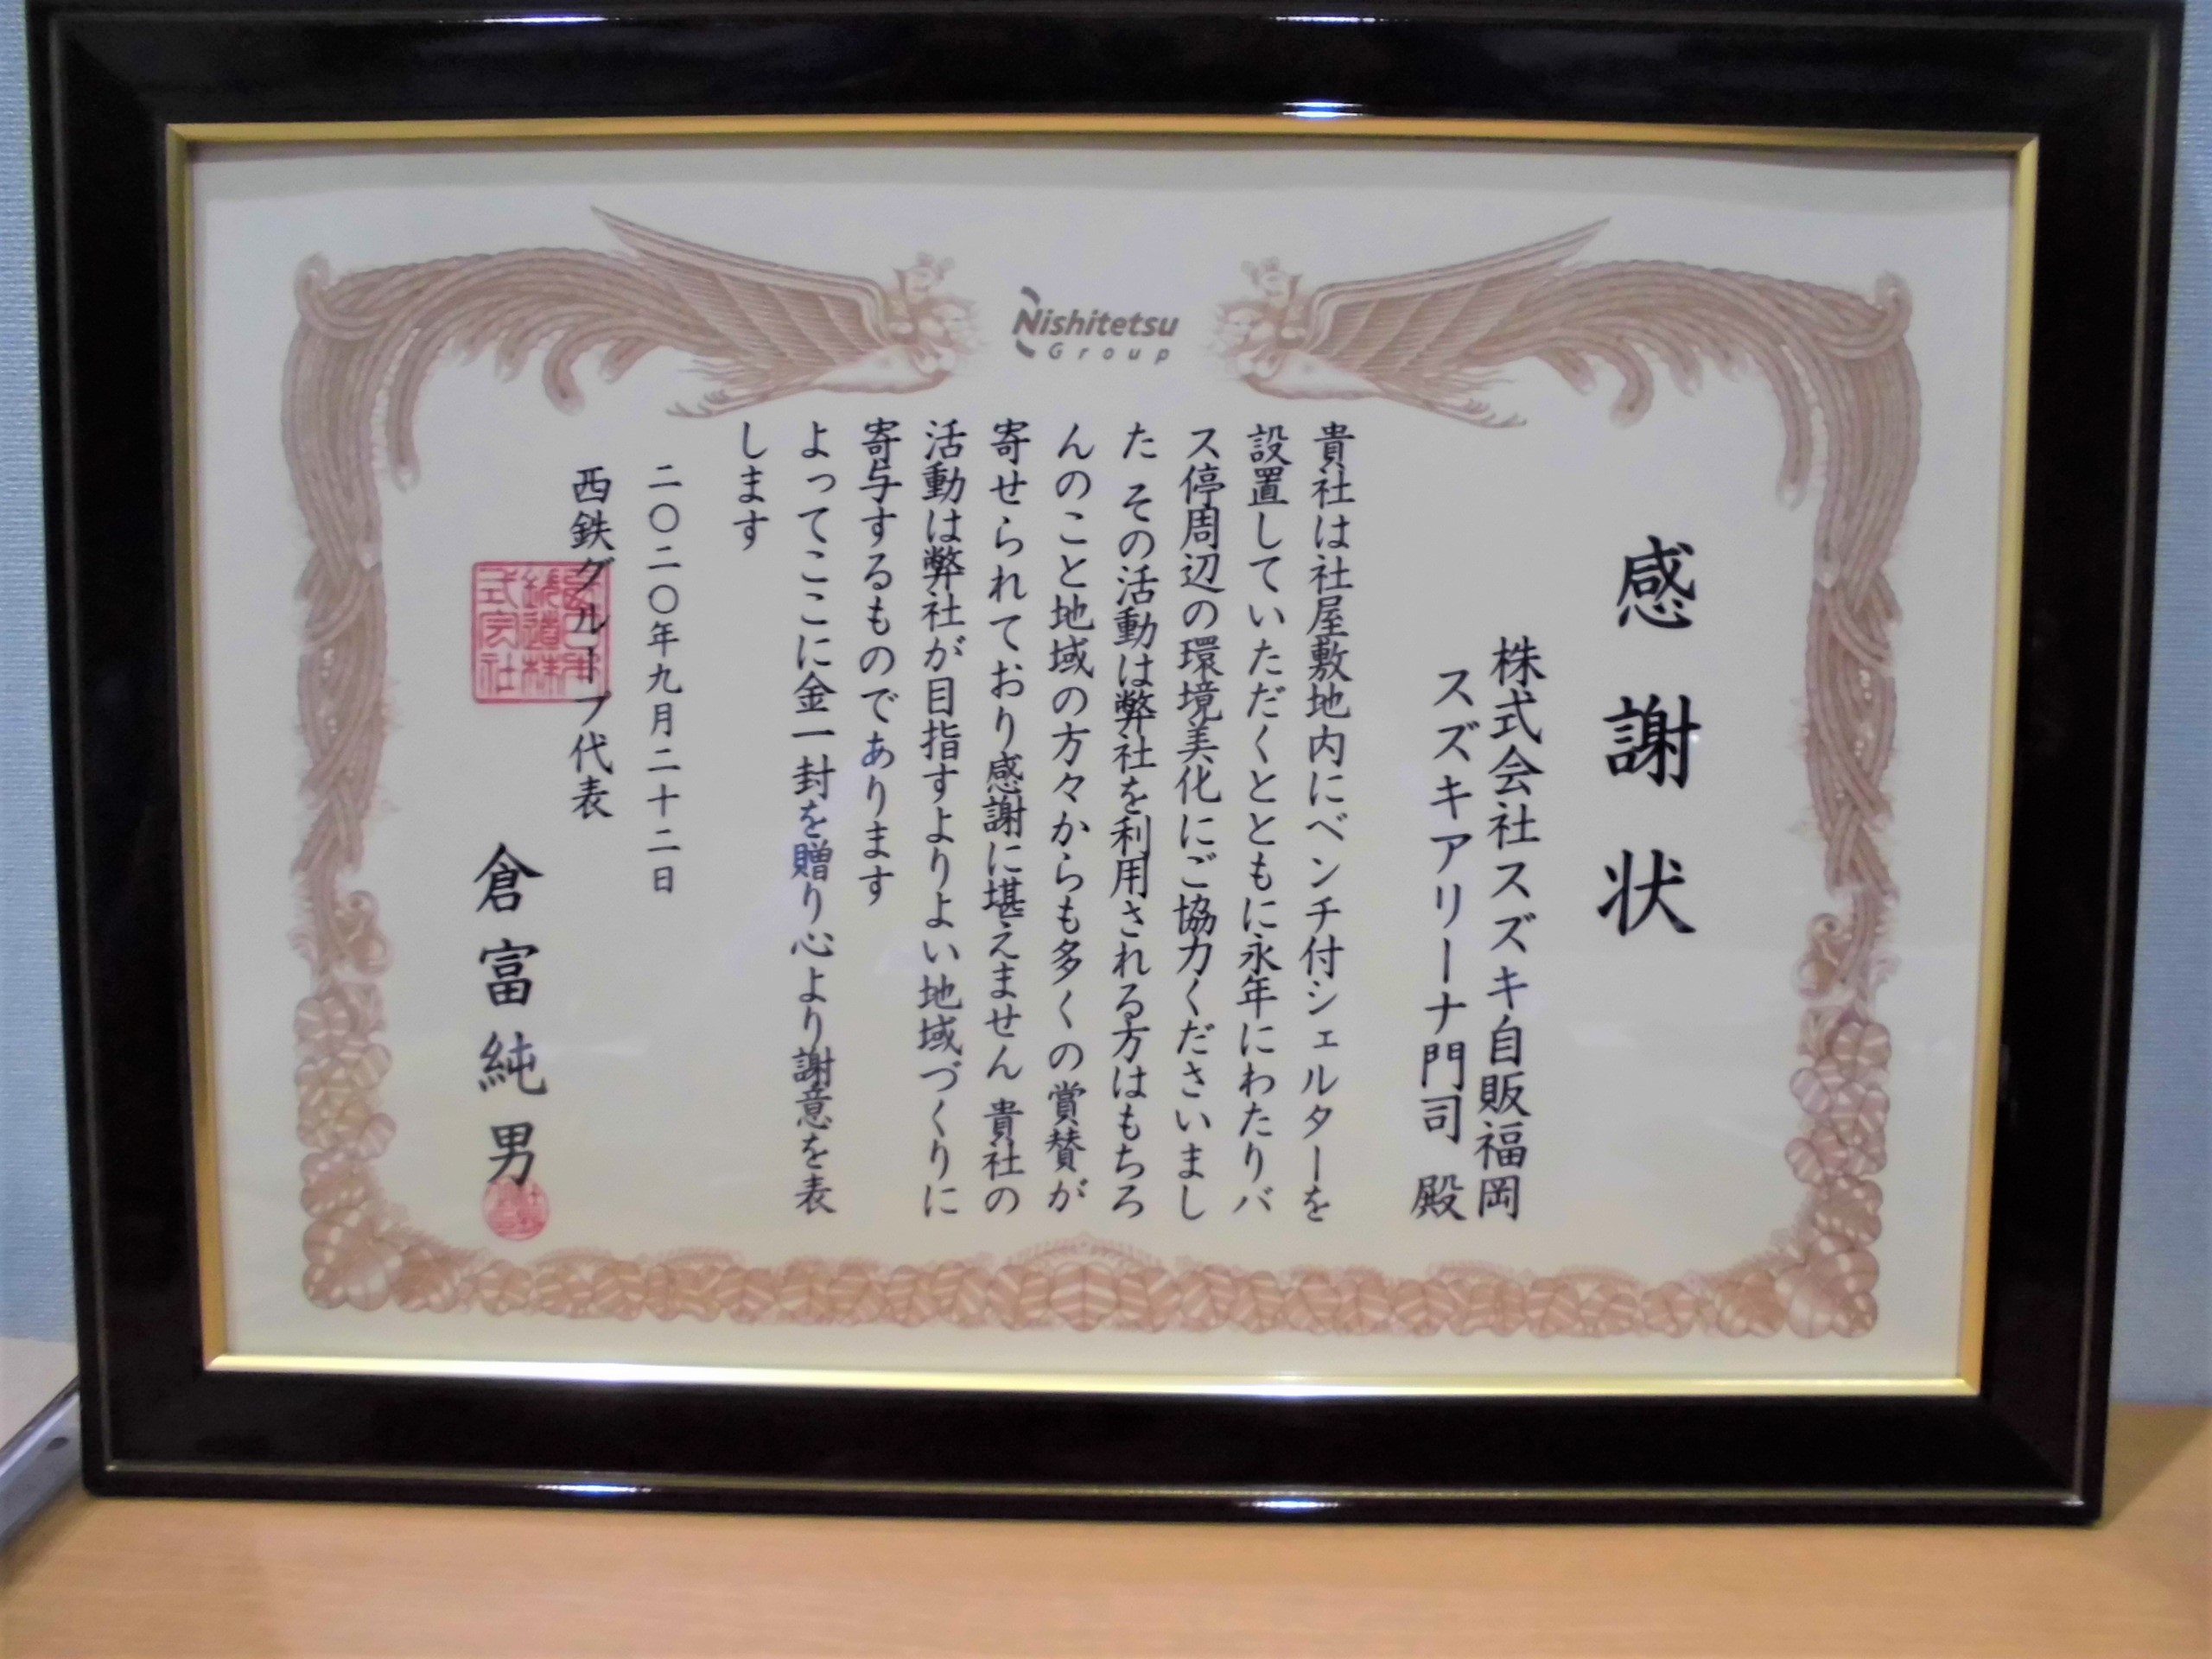 Nishitetsu
Group
感謝状
株式会社スズキ自販福岡
スズキアリーナ門司 殿
貴社は社屋敷地内にベンチ付シェルターを
設置していただくとともに永年にわたりバ
ス停周辺の環境美化にご協力くださいまし
た その活動は弊社を利用される方はもちろ
んのこと地域の方々からも多くの賞賛が
寄せられており感謝に堪えません 貴社の
活動は弊社が目指すよりよい地域づくりに
寄与するものであります
よってここに金一封を贈り心より謝意を表
します
二〇二〇年九月二十二日
西鉄グループ代表
倉富純男